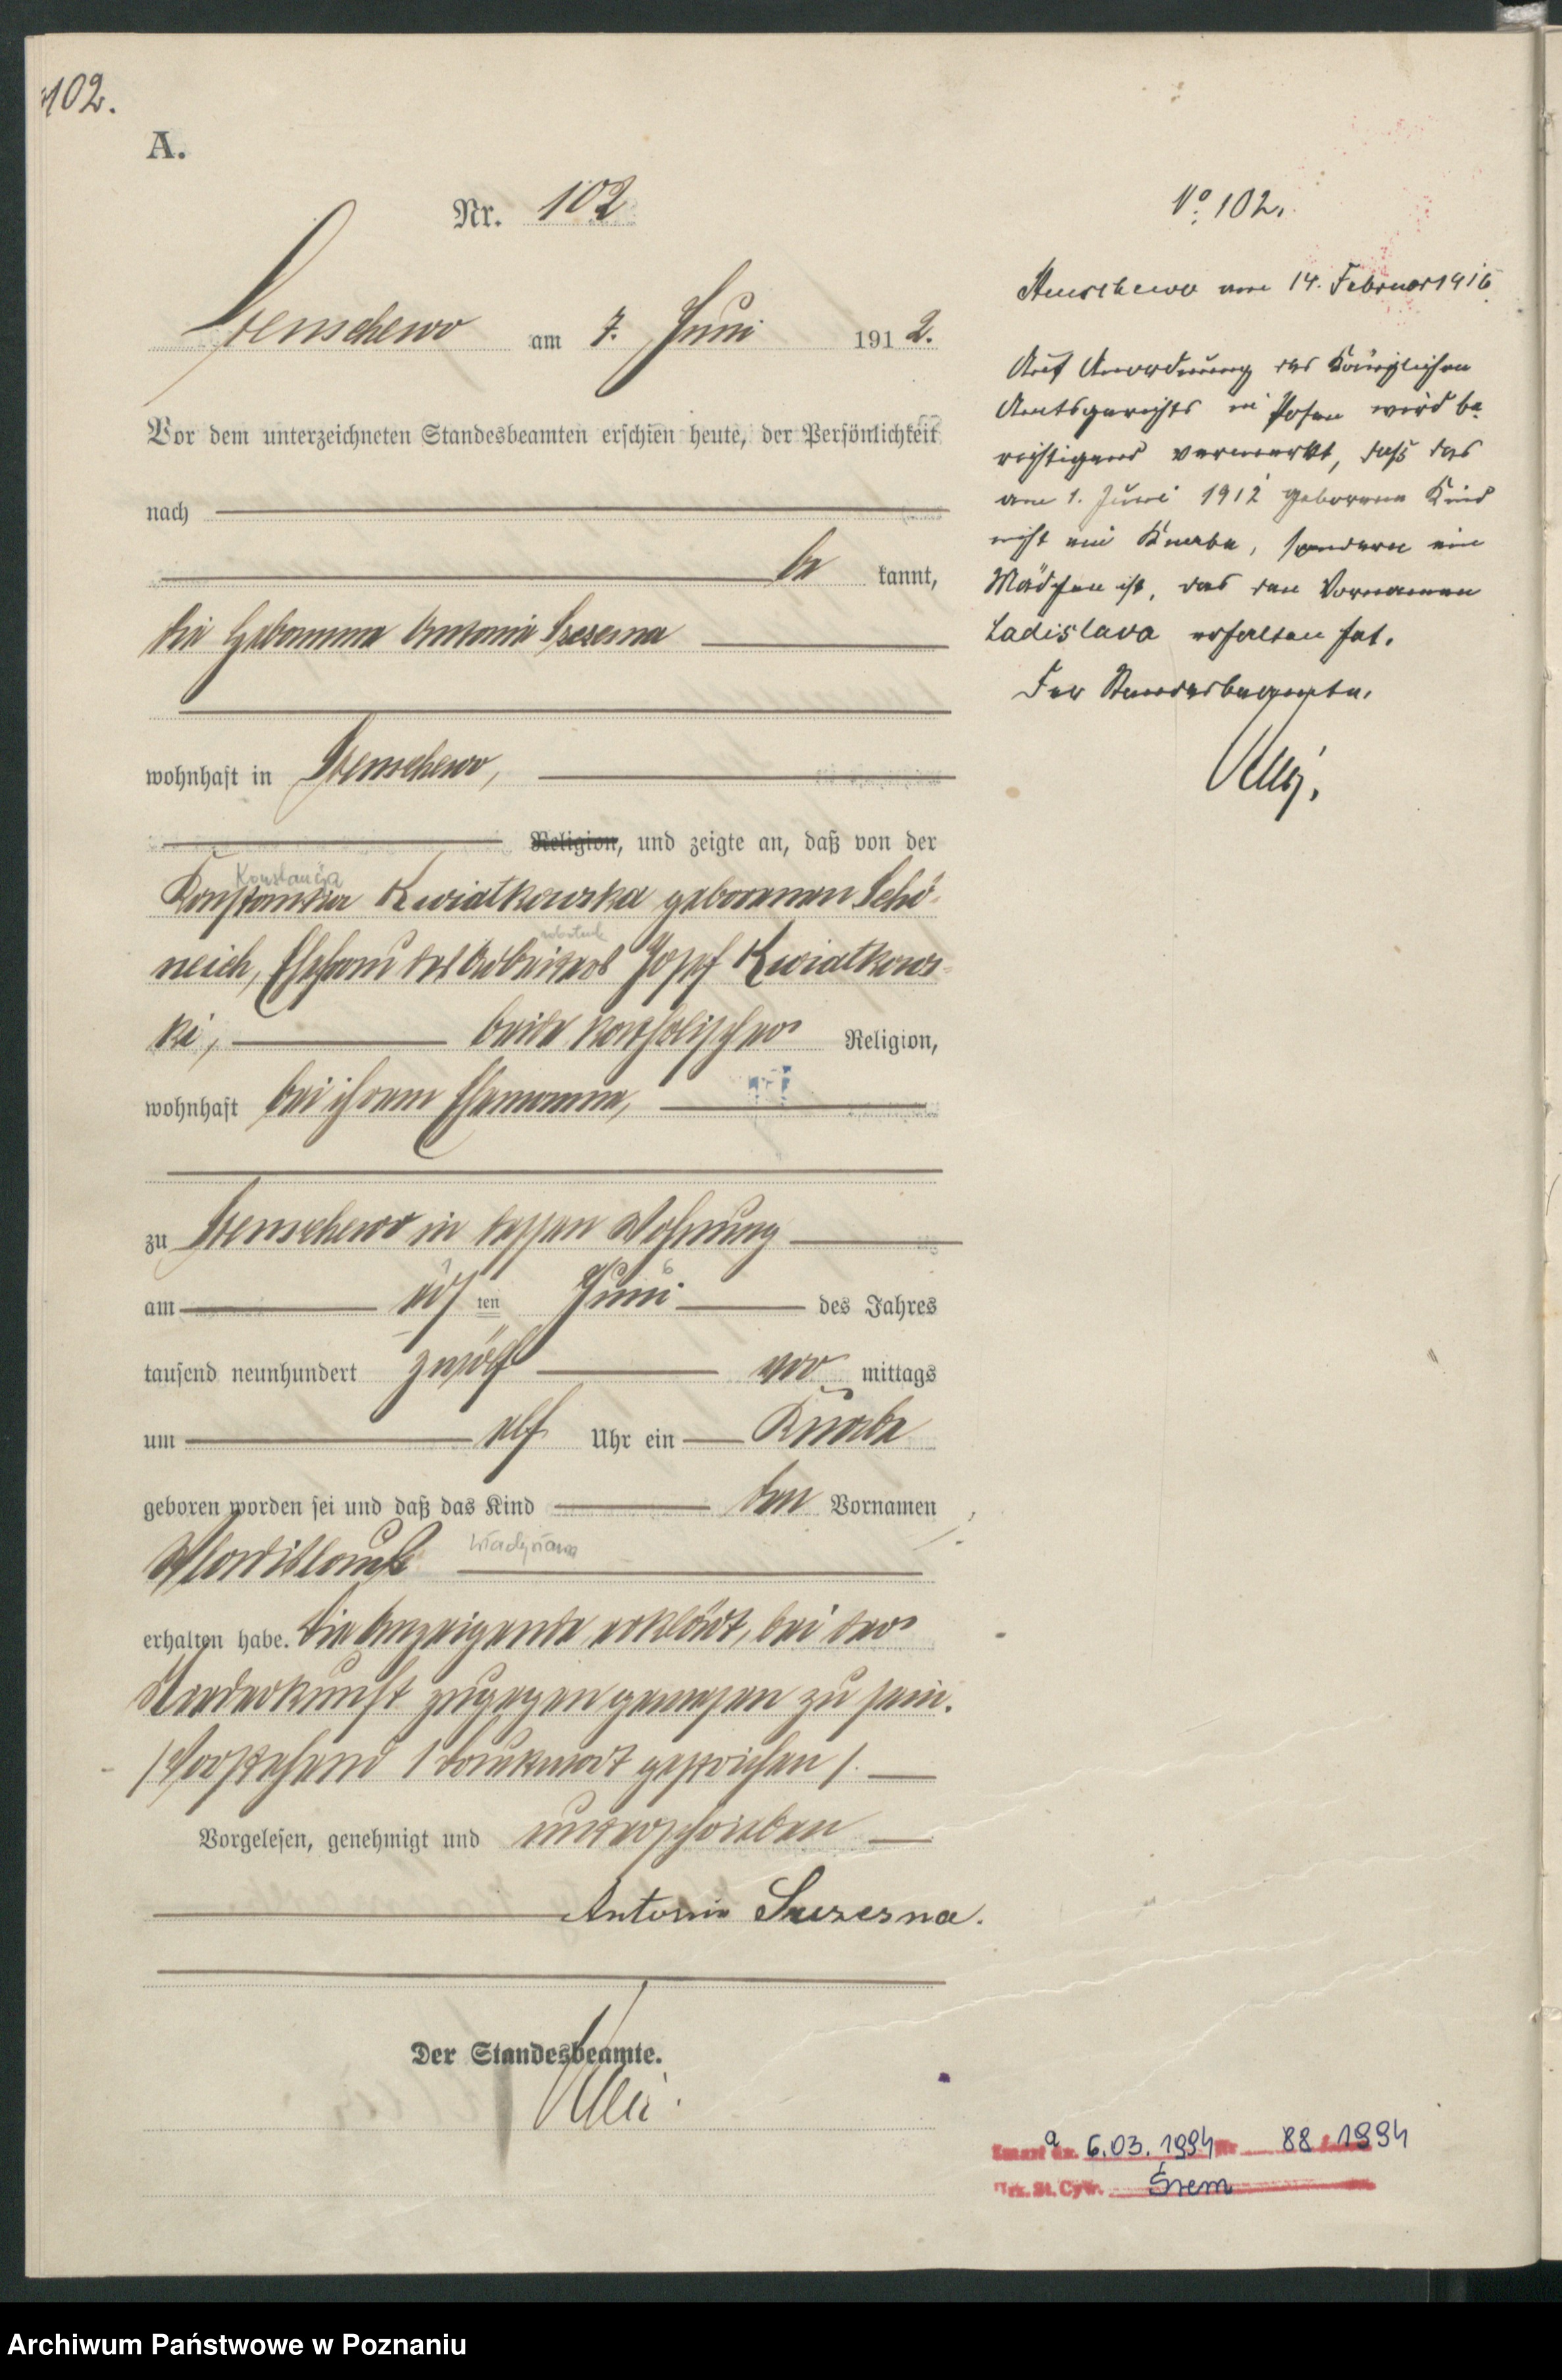 102.
A.
Nr. 102
Stenschewo am 7. Juni 1912.
Vor dem unterzeichneten Standesbeamten erschien heute, der Persönlichkeit
nach
be kannt,
die Hebamme Antonie
wohnhaft in Stenschewo,
Religion, und zeigte an, daß von der
Konstancja
Konstantia Kwiatkowska geborenen Schö-
robotnik
neich, Ehefrau des Arbeiters Josef Kwiatkows-
ki, beide katholischer Religion,
wohnhaft bei ihrem Ehemanne,
zu Stenschewo in dessen Wohnung
am ten Juni des Jahres
tausend neunhundert zwölf vor mittags
um elf Uhr ein Knabe
geboren worden sei und daß das Kind den Vornamen
Wladislaus Władysława
erhalten habe. Die Anzeigende erklärt, bei der
Niederkunft zugegen gewesen zu sein.
/Vorstehend 1 Druckwort gestrichen/.
Vorgelesen, genehmigt und unterschrieben
Antonie
Der Standesbeamte.
No 102.
Stenschewo am 14. Februar 1916
Auf Anordnung des Königlichen
Amtsgerichts in Posen wird be-
richtigend vermerkt, daß das
am 1. Juni 1912 geborene Kind
nicht ein Knabe, sondern ein
Mädchen ist, das den Vornamen
Ladislava erhalten hat.
Der Standesbeamte.
a 6.03.1994 Nr 88 1994
Urz. St. Cyw. Śrem
Archiwum Państwowe w Poznaniu